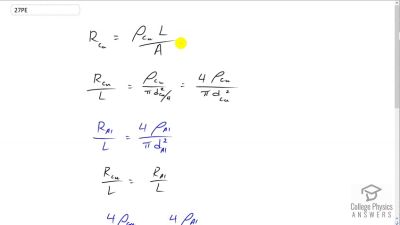 27PE
R_Cu = ρ_Cu L / A
R_Cu / L = ρ_Cu / (π d_Cu² / 4) = 4 ρ_Cu / (π d_Cu²)
R_Al / L = 4 ρ_Al / (π d_Al²)
R_Cu / L = R_Al / L
4 ρ_Cu 4 ρ_Al
College Physics
ANSWERS